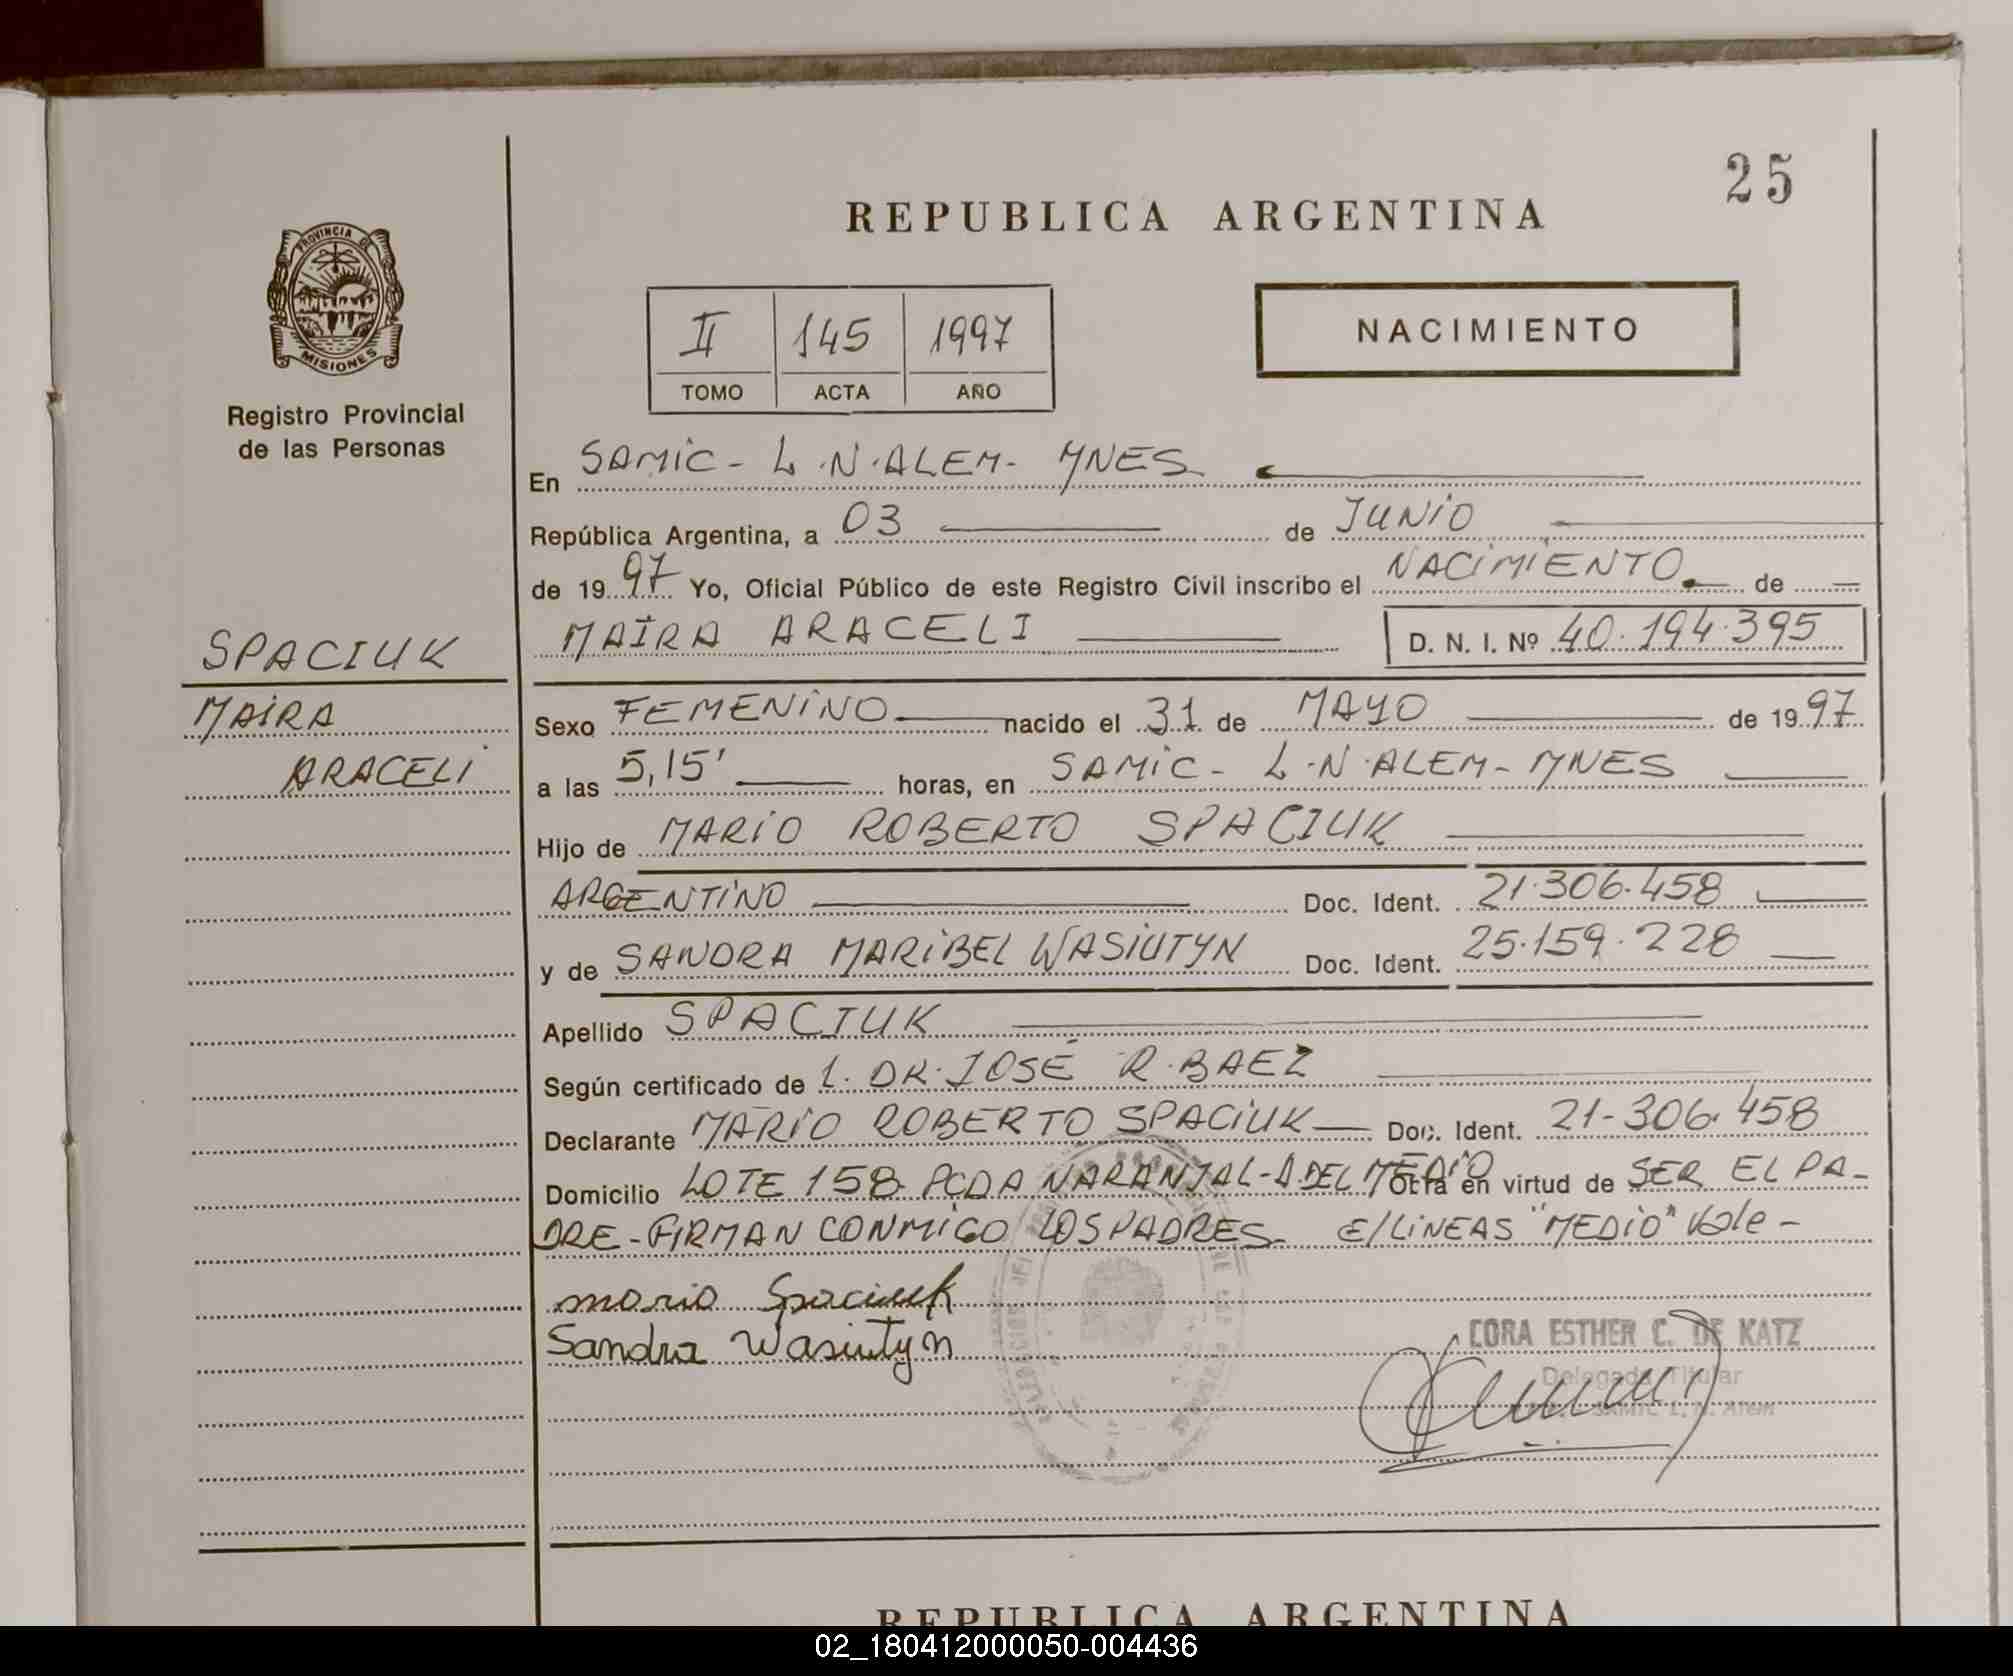 25
REPUBLICA ARGENTINA
PROVINCIA DE
MISIONES
Registro Provincial
de las Personas
II 145 1997
TOMO ACTA AÑO
NACIMIENTO
En SAMIC - L.N.ALEM - MNES
República Argentina, a 03 de JUNIO
de 1997 Yo, Oficial Público de este Registro Civil inscribo el NACIMIENTO de
MAIRA ARACELI D. N. I. Nº 40.194.395
SPACIUK
MAIRA
ARACELI
Sexo FEMENINO nacido el 31 de MAYO de 1997
a las 5,15' horas, en SAMIC - L.N.ALEM - MNES
Hijo de MARIO ROBERTO SPACIUK
ARGENTINO Doc. Ident. 21.306.458
y de SANDRA MARIBEL WASIUTYN Doc. Ident. 25.159.228
Apellido SPACIUK
Según certificado de L. DR. JOSÉ R. BAEZ
Declarante MARIO ROBERTO SPACIUK Doc. Ident. 21-306.458
Domicilio LOTE 158 PCDA NARANJAL - A. DEL MEDIO otra en virtud de SER EL PA-
DRE - FIRMAN CONMIGO LOS PADRES - E/LINEAS "MEDIO" Vale -
mario Spaciuk
Sandra Wasiutyn
CORA ESTHER C. DE KATZ
Delegada Titular
SAMIC L. N. Alem
REPUBLICA ARGENTINA
02_180412000050-004436